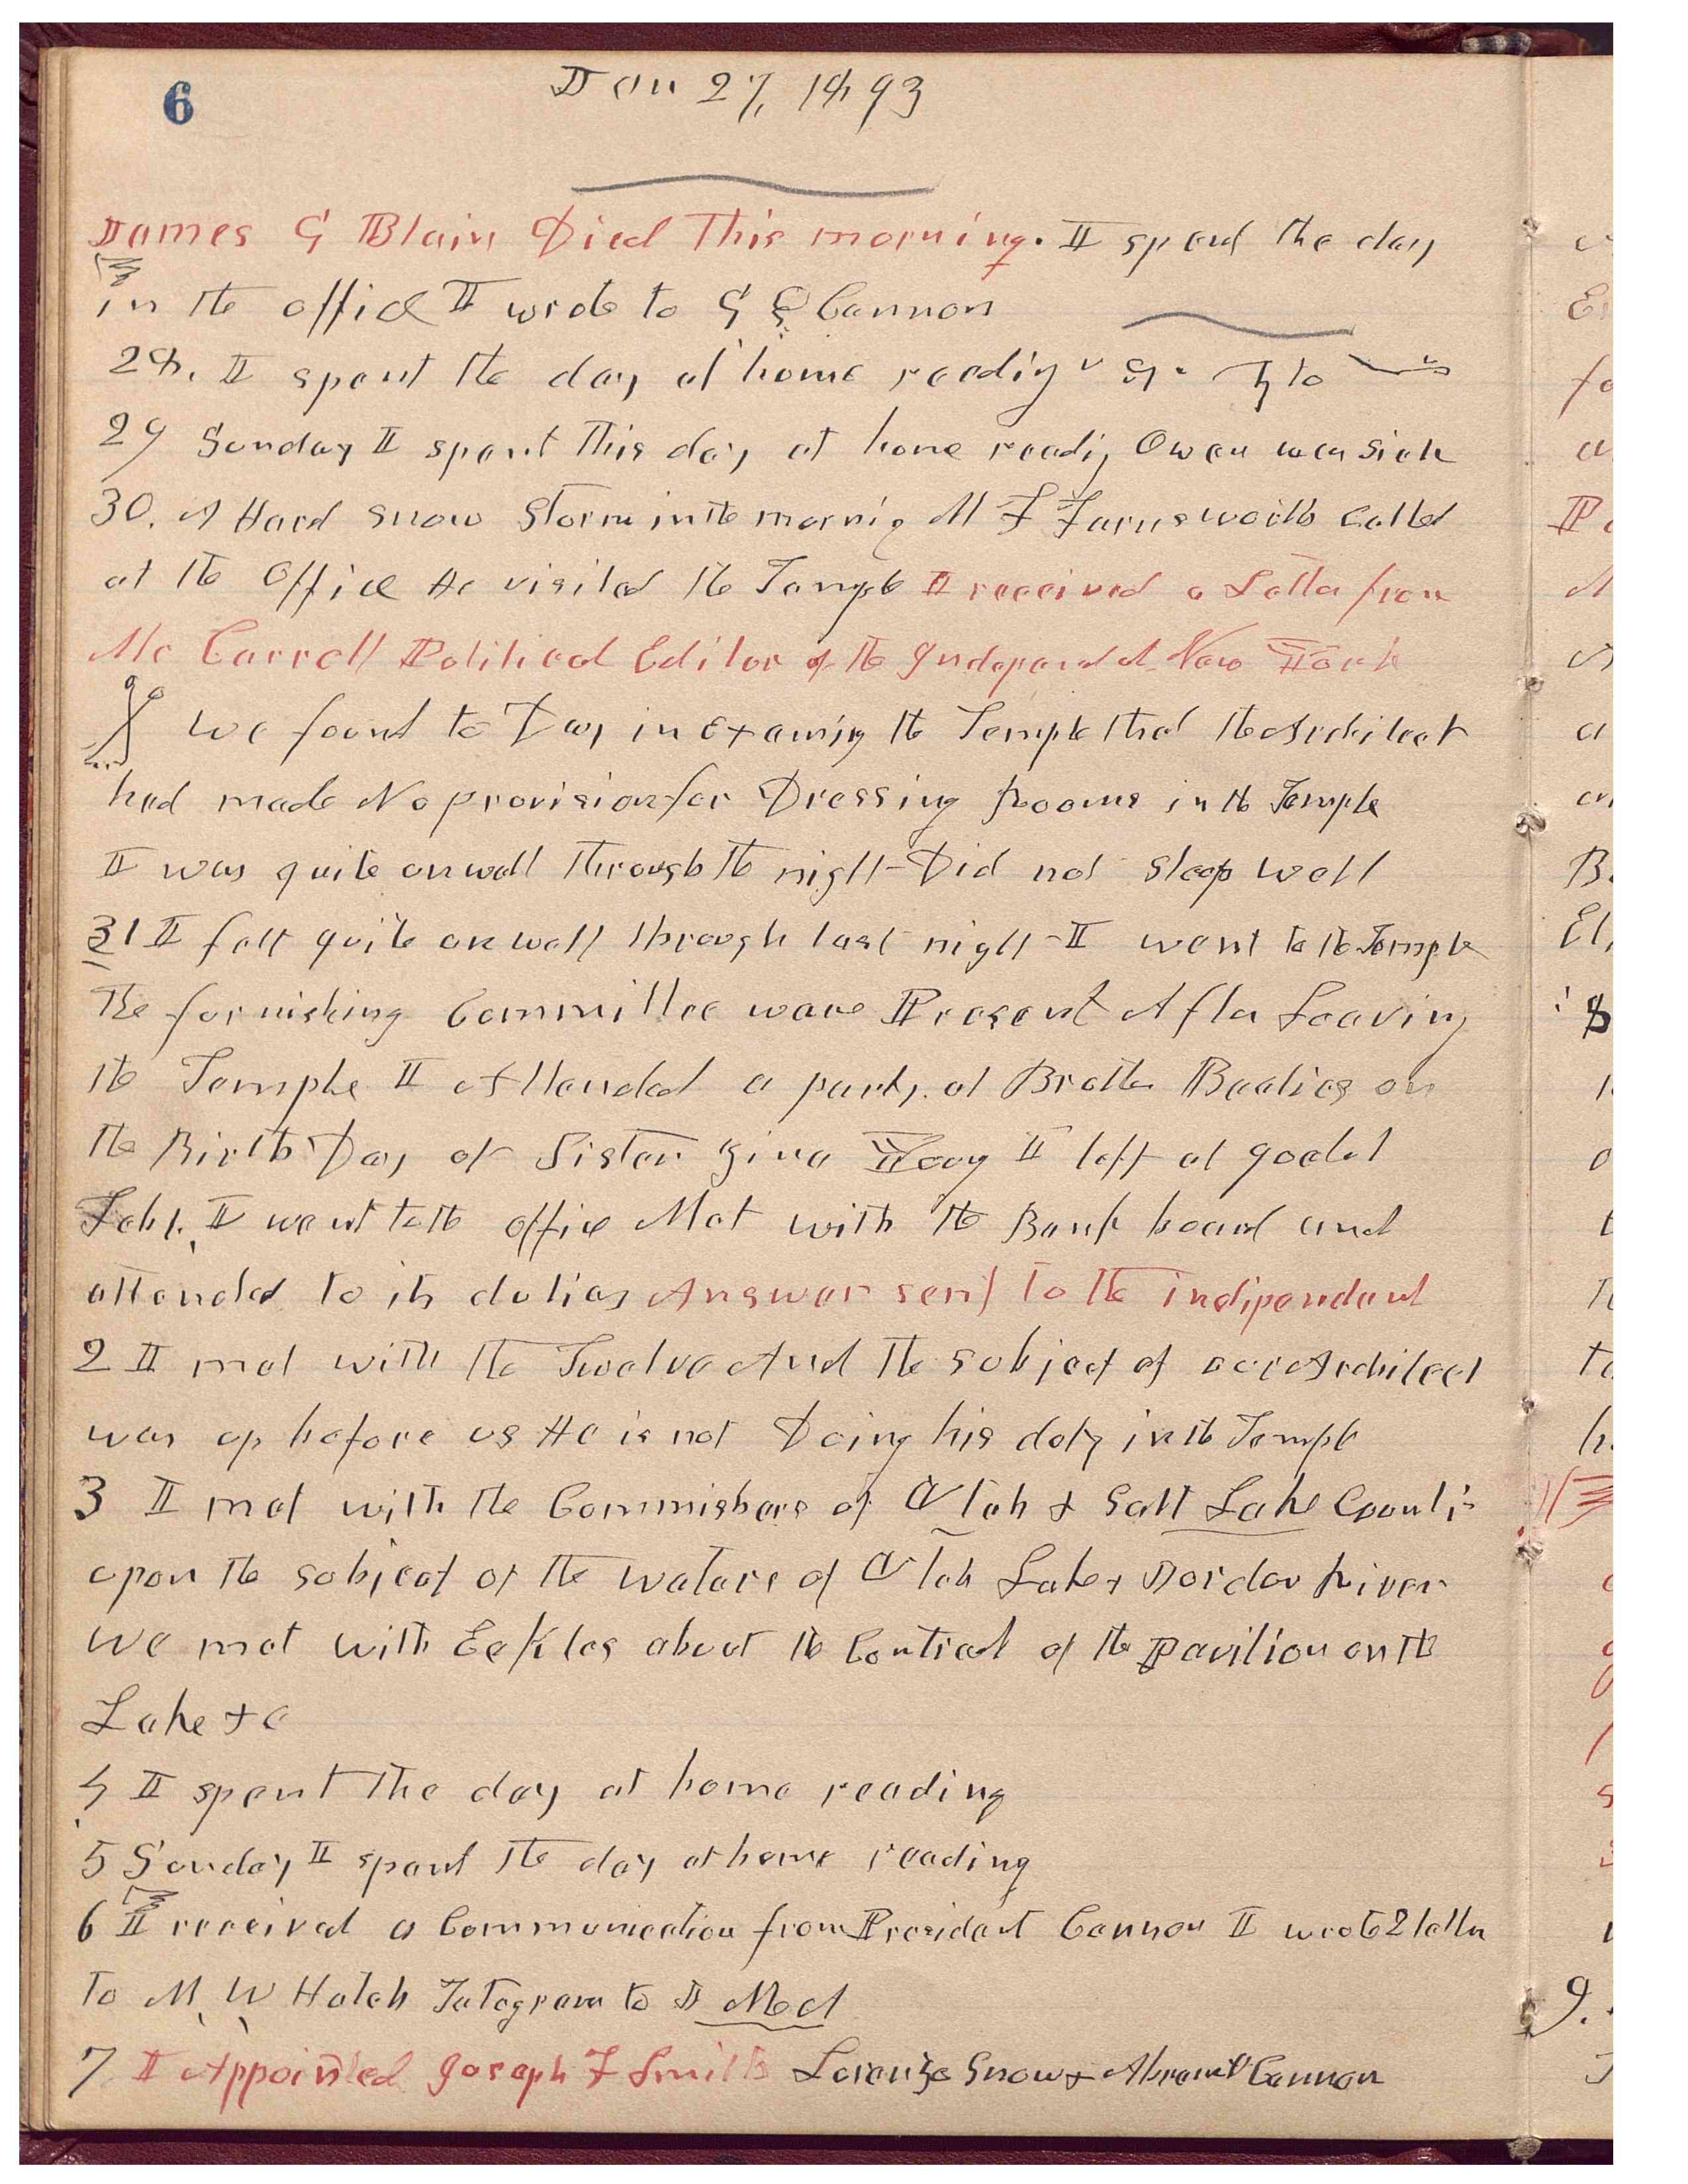 6
Jan 27, 1893
James G Blain Died This morning. I spent the day
in the office I wrote to G Q Cannon
28. I spent the day at home reading
29 Sunday I spent this day at home readig Owen was sick
30. A Hard snow Storm in the mornig M F Farnsworth Called
at the Office He visited the Temple I received a Letter from
Mr Carroll Political Editor of the Independet New York
We found to Day in Examinig the Temple that the Architect
had made No provision for Dressing Rooms in the Temple
I was quite unwell through the night Did not sleep well
31 I felt quite unwell through last night I went to the Temple
The furnishing Committee ware Present After Leaving
the Temple I Attended a party at Brother Beaties on
the Birth Day of Sister Zina Young I left at
Feb 1. I went to the office Met with the Bank board and
attended to its duties Answer sent to the independent
2 I met with the Twelve And the subject of our Architect
was up before us He is not Doing his duty in the Temple
3 I met with the Commishers of Utah & Salt Lake Counties
upon the subject of the waters of Utah Lake & Jordan River
We met with Eckles about the Contract of the Pavilion on the
Lake &c
4 I spent the day at home reading
5 Sunday I spent the day at home reading
6 I received a Communication from President Cannon I wrote 2 letters
to M W Hatch Telegram to
7 I Appointed Joseph F Smith Lorenzo Snow & Abram H Cannon